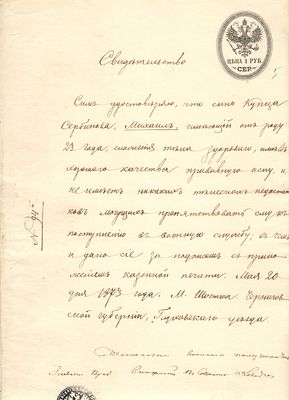 ЦѢНА 1 РУБ.
СЕР.
Свидѣтельство
Симъ удостовѣряю, что сынъ Купца
Сербинова, Михаилъ, имѣющій отъ роду
23 года, сложенія тѣла здороваго, имѣетъ
хорошаго качества прививную оспу, и
не имѣетъ никакихъ тѣлесныхъ недостат
ковъ могущихъ препятствовать ему къ
поступленію въ военную службу, въ чемъ
и дано сіе за подписомъ съ прило
женіемъ казенной печати. Мая 20
дня 1873 года. М. Шостка Чернигов
ской губерніи, Глуховскаго уѣзда.
Врач